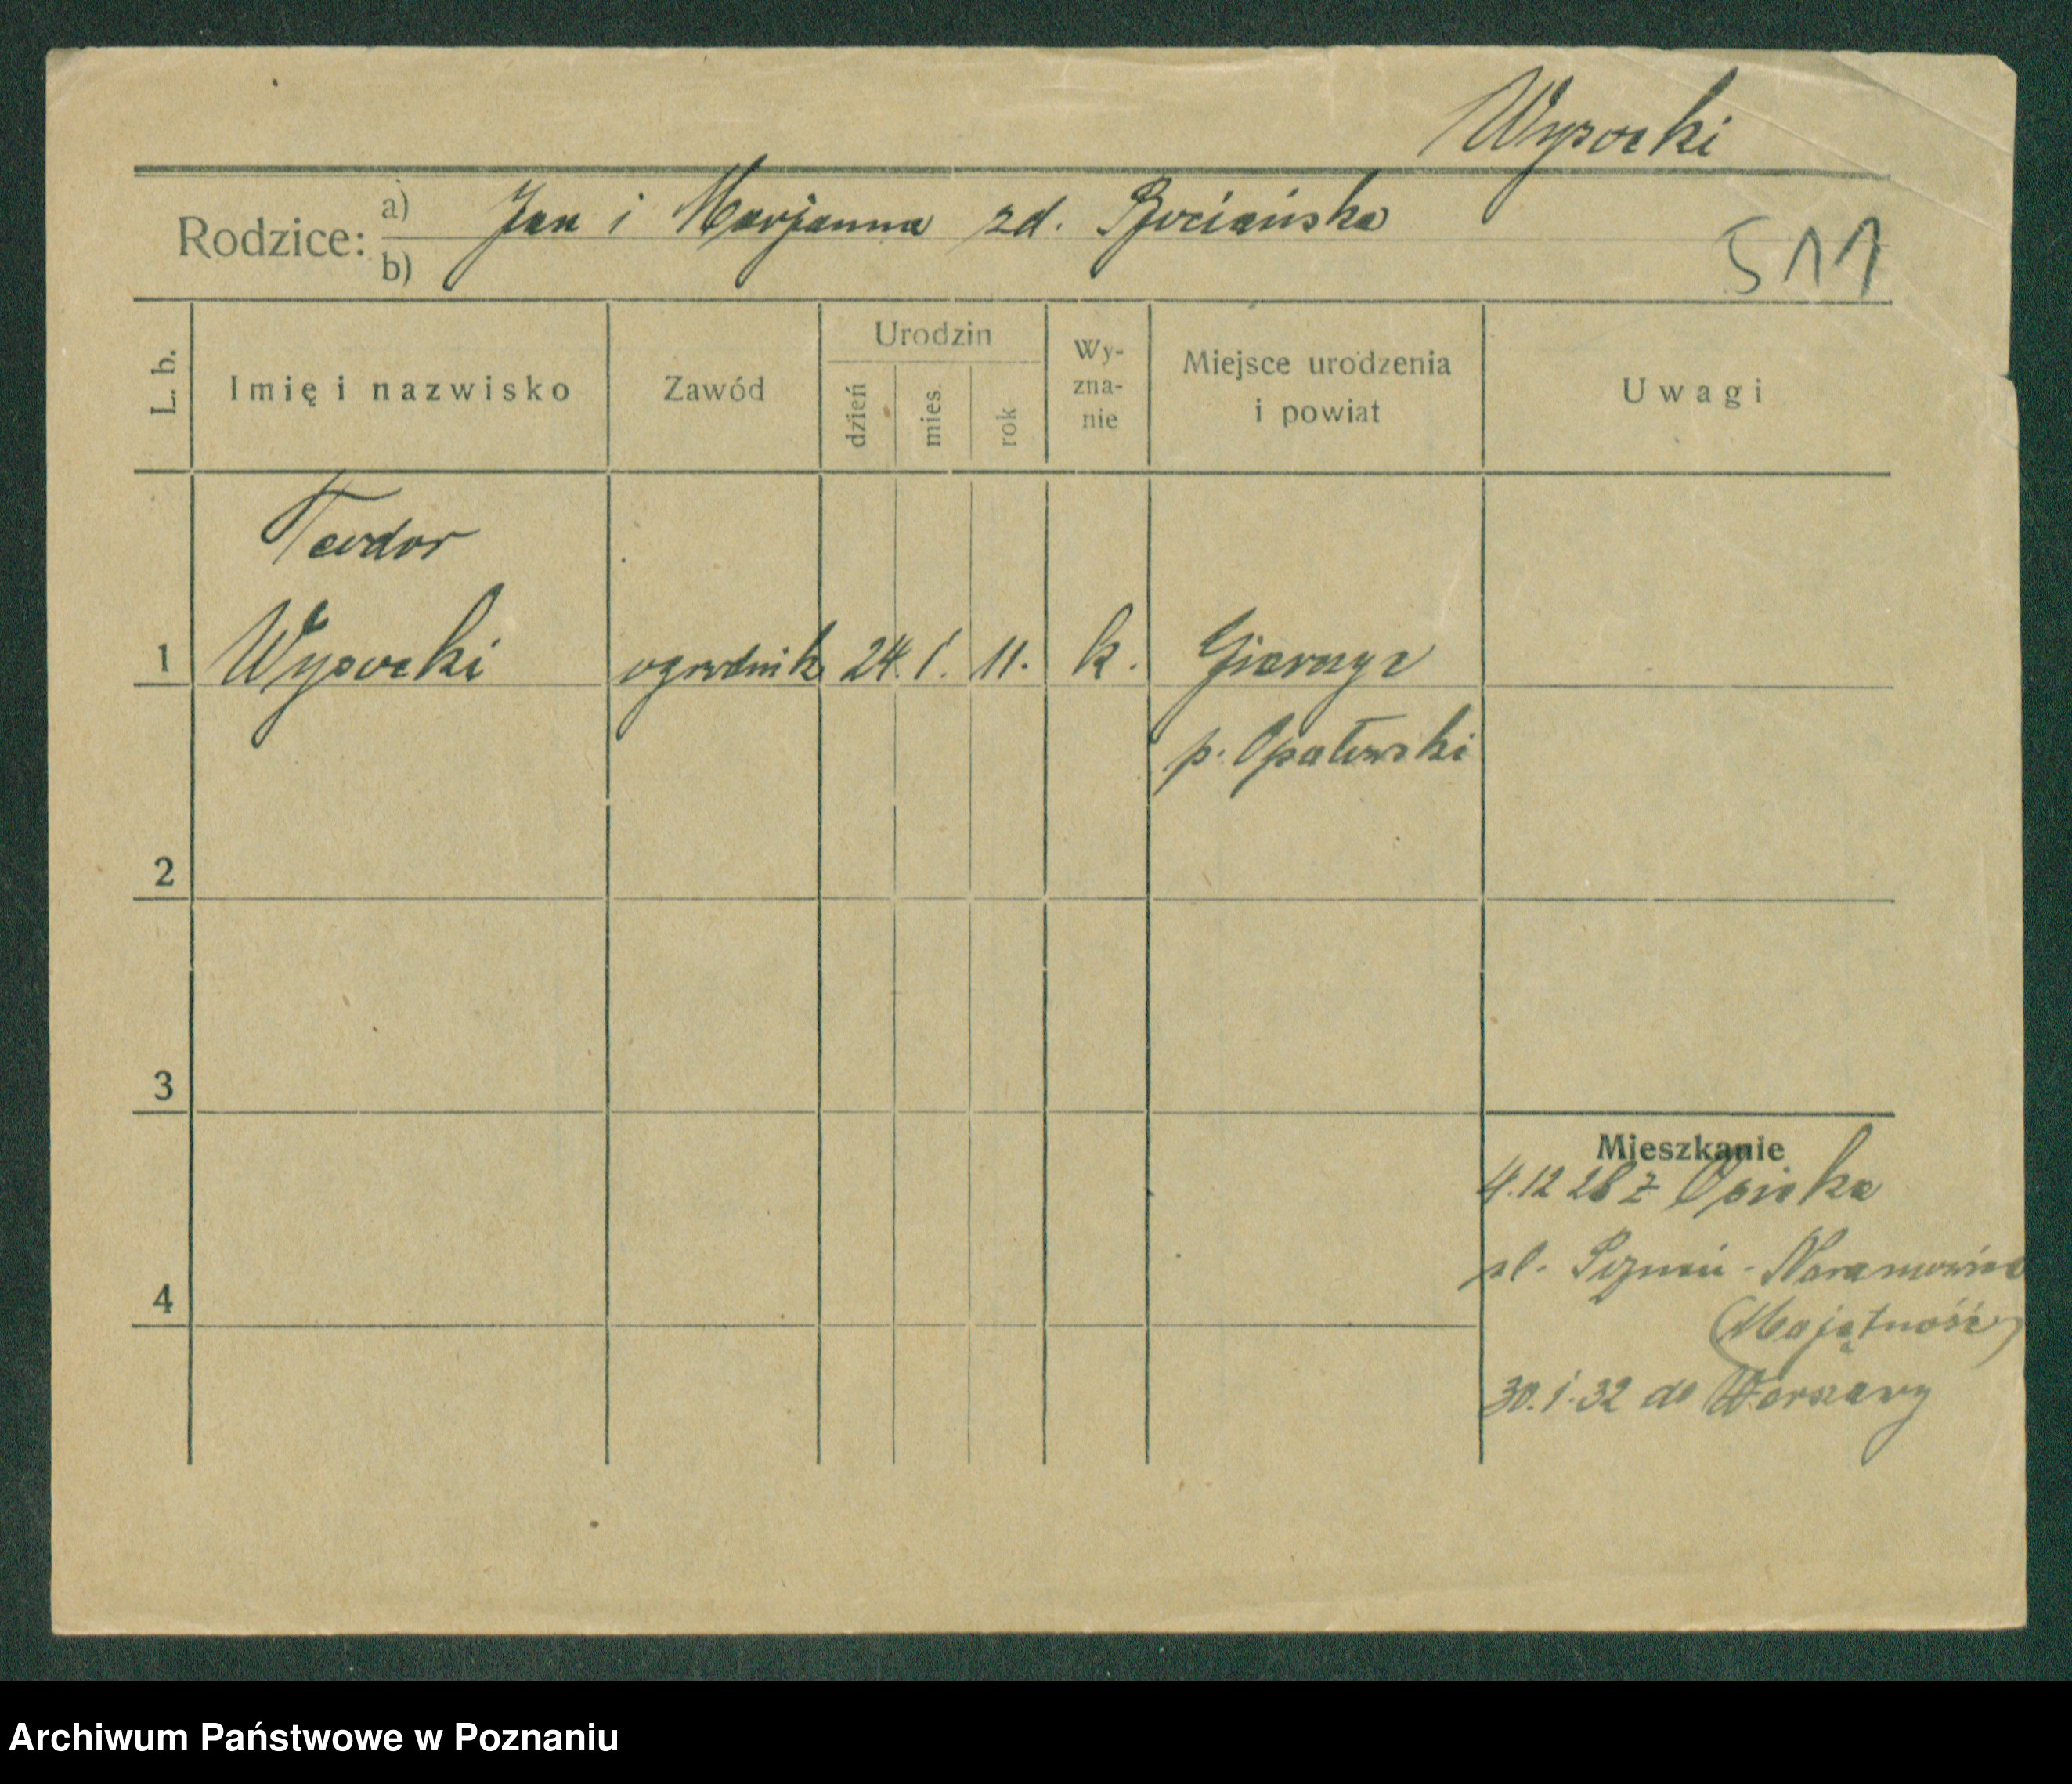 Wysocki
Rodzice: a) Jan i Marjanna zd. Bociańska
b)
511
L. b. Imię i nazwisko Zawód Urodzin dzień mies. rok Wy-zna-nie Miejsce urodzenia i powiat Uwagi
Teodor
1 Wysocki ogrodnik 24. 1. 11. k.
p. Opatowski
2
3
Mieszkanie
4.12 28 z
Poznań - Naramowice
4
(Majętność)
30.1.32 do Warszawy
Archiwum Państwowe w Poznaniu